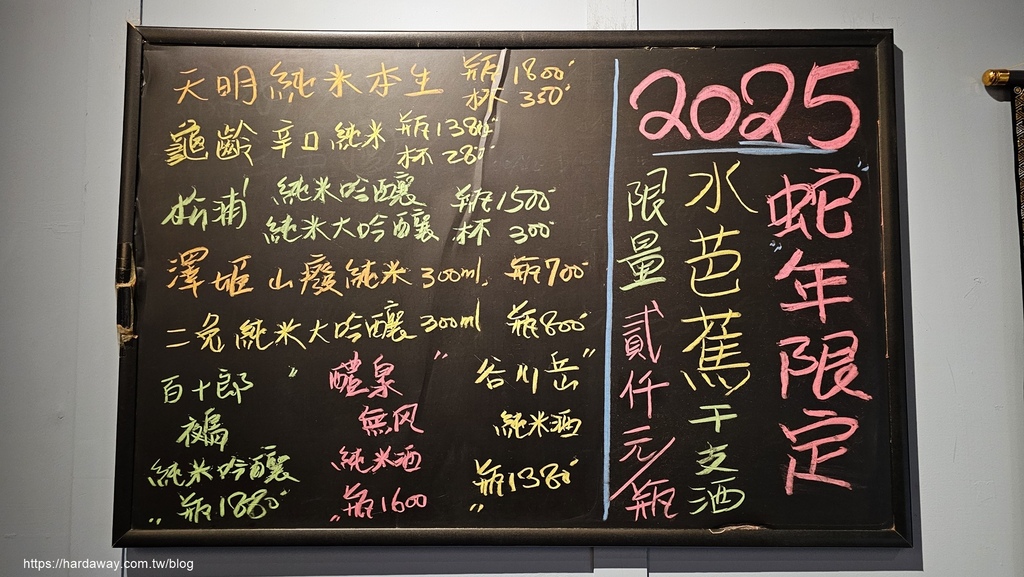 天明 純米本生 瓶1800
杯 350
龜齡 辛口純米 瓶1380
杯 280
松浦 純米吟釀 瓶1500
純米大吟釀 杯 300
澤姬 山廢純米 300ml 瓶700
二兔 純米大吟釀 300ml 瓶800
百十郎
純米吟釀
瓶1880
醴泉
無风
純米酒
瓶1600
谷川岳
純米酒
瓶1380
2025
蛇年限定
水芭蕉干支酒
限量貳仟元/瓶
https://hardaway.com.tw/blog